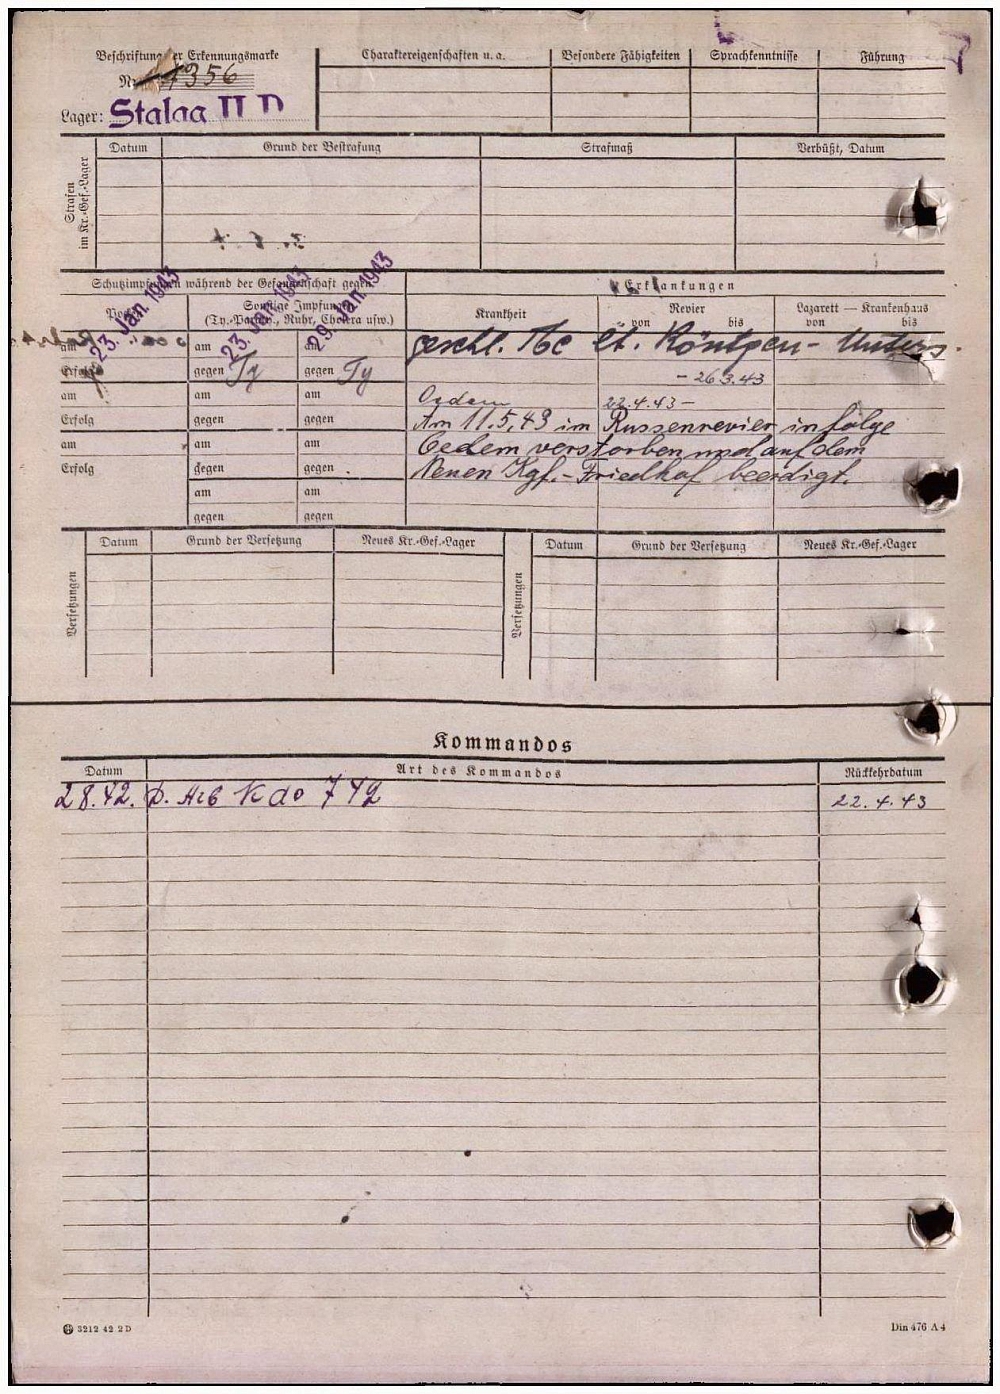 Beschriftung der Erkennungsmarke
Nr. 356
Lager: Stalag II D
Charaktereigenschaften u. a.
Besondere Fähigkeiten
Sprachkenntnisse
Führung
Strafen im Kr.-Gef.-Lager
Datum
Grund der Bestrafung
Strafmaß
Verbüßt, Datum
Schutzimpfungen während der Gefangenschaft gegen
Erkrankungen
Pocken
Sonstige Impfungen
(Ty.-Paraty., Ruhr, Cholera usw.)
Krankheit
Revier
von bis
Lazarett — Krankenhaus
von bis
23. Jan. 1943
23. Jan. 1943
29. Jan. 1943
am am am geschl. Tbc lt. Röntgen-Unters.
Erfolg gegen Ty gegen Ty - 26 3.43
am am am Oedem 22.4.43 -
Erfolg gegen gegen Am 11.5.43 im Russenrevier infolge
am am am Oedem verstorben und auf dem
Erfolg gegen gegen Neuen Kgf.-Friedhof beerdigt.
am am
gegen gegen
Versetzungen
Datum
Grund der Versetzung
Neues Kr.-Gef.-Lager
Versetzungen
Datum
Grund der Versetzung
Neues Kr.-Gef.-Lager
Kommandos
Datum Art des Kommandos Rückkehrdatum
28.42. Arb Kdo 742 22.4.43
3212 42 2 D
Din 476 A 4